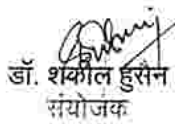 डॉ. शकील हुसैन
संयोजक